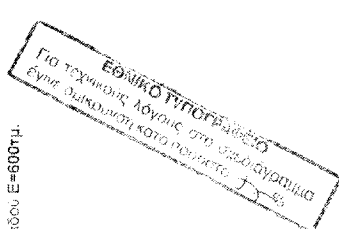 ΕΘΝΙΚΟ ΤΥΠΟΓΡΑΦΕΙΟ
Για τεχνικούς λόγους στο σχεδιάγραμμα
έγινε σμίκρυνση κατά ποσοστό
δού Ε=600τμ.